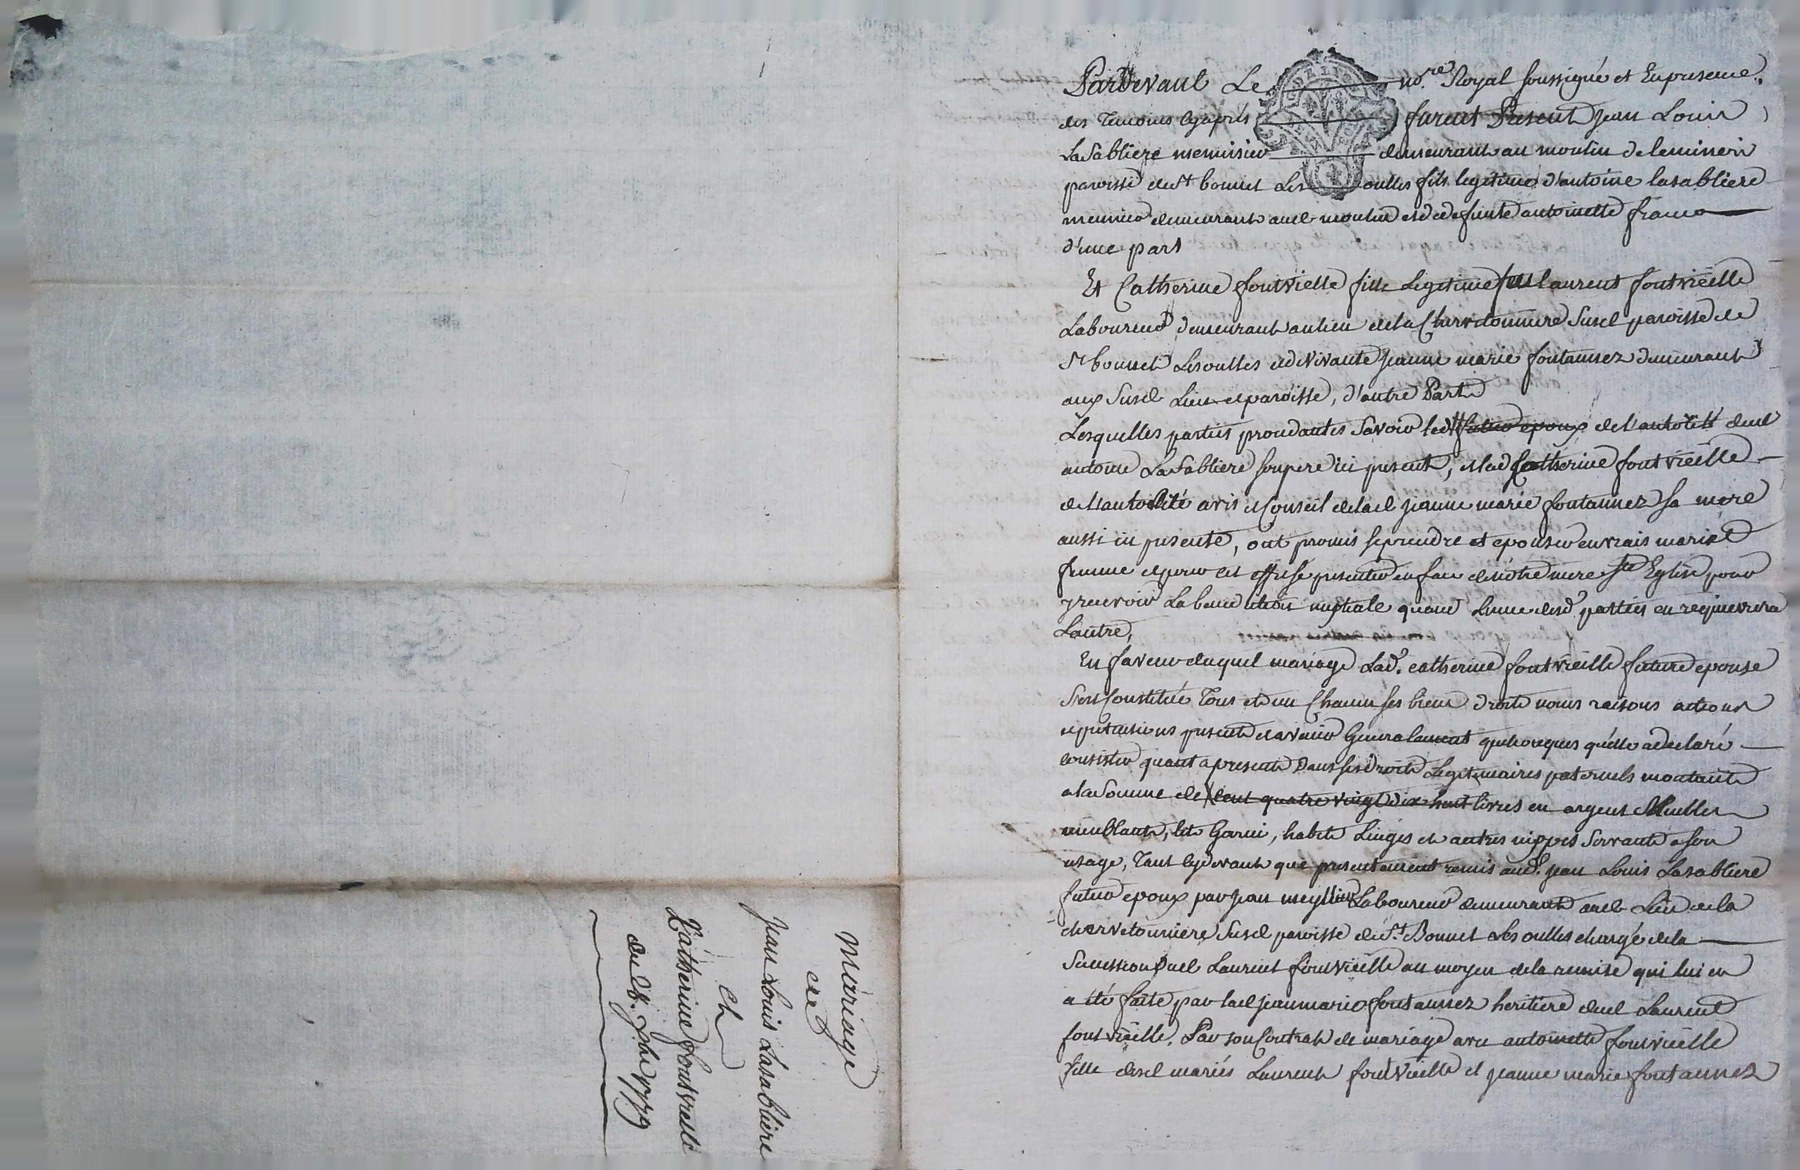 Pardevant Le no.re Royal soussigné et En presence
des Temoins cy après furent Present Jean Louis
La Sabliere menuisier demeurant au moulin de
paroisse de St bonnet Les oulles fils legitime d'antoine lasabliere
meunier demeurant audt moulin et de defunte antoinette franc
d'une part
Et Catherine fontvielle fille Legitime feu Laurent fontvieille
Laboureur demeurant au lieu de la Chervetonniere Susd paroisse de
St bonnet Lesoulles et de vivante Jeanne marie fontannez demeurant
aux Susd Lieu et paroisse, d'autre Part
Lesquelles parties procedantes Savoir led futur epoux de L'autorité dud
antoine La Sabliere son pere ici present, et lad Catherine fontvieille
de L'autorité avis et Conseil de lad Jeanne marie fontannez sa mere
aussi ici presente, ont promis se prendre et epouser en vrais mari et
femme et pour cet effet se presenter en face de nôtre mere Ste Eglise pour
y recevoir La benediction nuptiale quand L'une desd parties en requerrera
L'autre,
En faveur duquel mariage Lad. catherine fontvieille future epouse
S'est Constitué Tous et un Chacun ses biens droits noms raisons actions
et pretensions presents et avenir Generalement quelconques qu'elle a declaré
consister quant a present Dans ses droits Legitimaires paternels montants
a la Somme de Cent quatre vingt Dix huit livres en argent Meubles
meublants, lit Garni, habits Linges et autres nippes Servants a son
usage, Tant cy devant que presentement remis aud. Jean Louis Lasabliere
futur epoux par Jean Laboureur demeurant aud Lieu de la
chervetonniere Susd paroisse de St. Bonnet Les oulles chargé de la
Succession dud Laurent fontvieille au moyen de la remise qui lui en
a été faite par lad Jeanne marie fontannez heritiere dud Laurent
fontvieille, Par son Contrat de mariage avec antoinette fontvieille
fille desd mariés Laurent fontvieille et Jeanne marie fontannez
Mariage
de
Jean Louis Lasabliere
et
Catherine fontvieille
du 1779